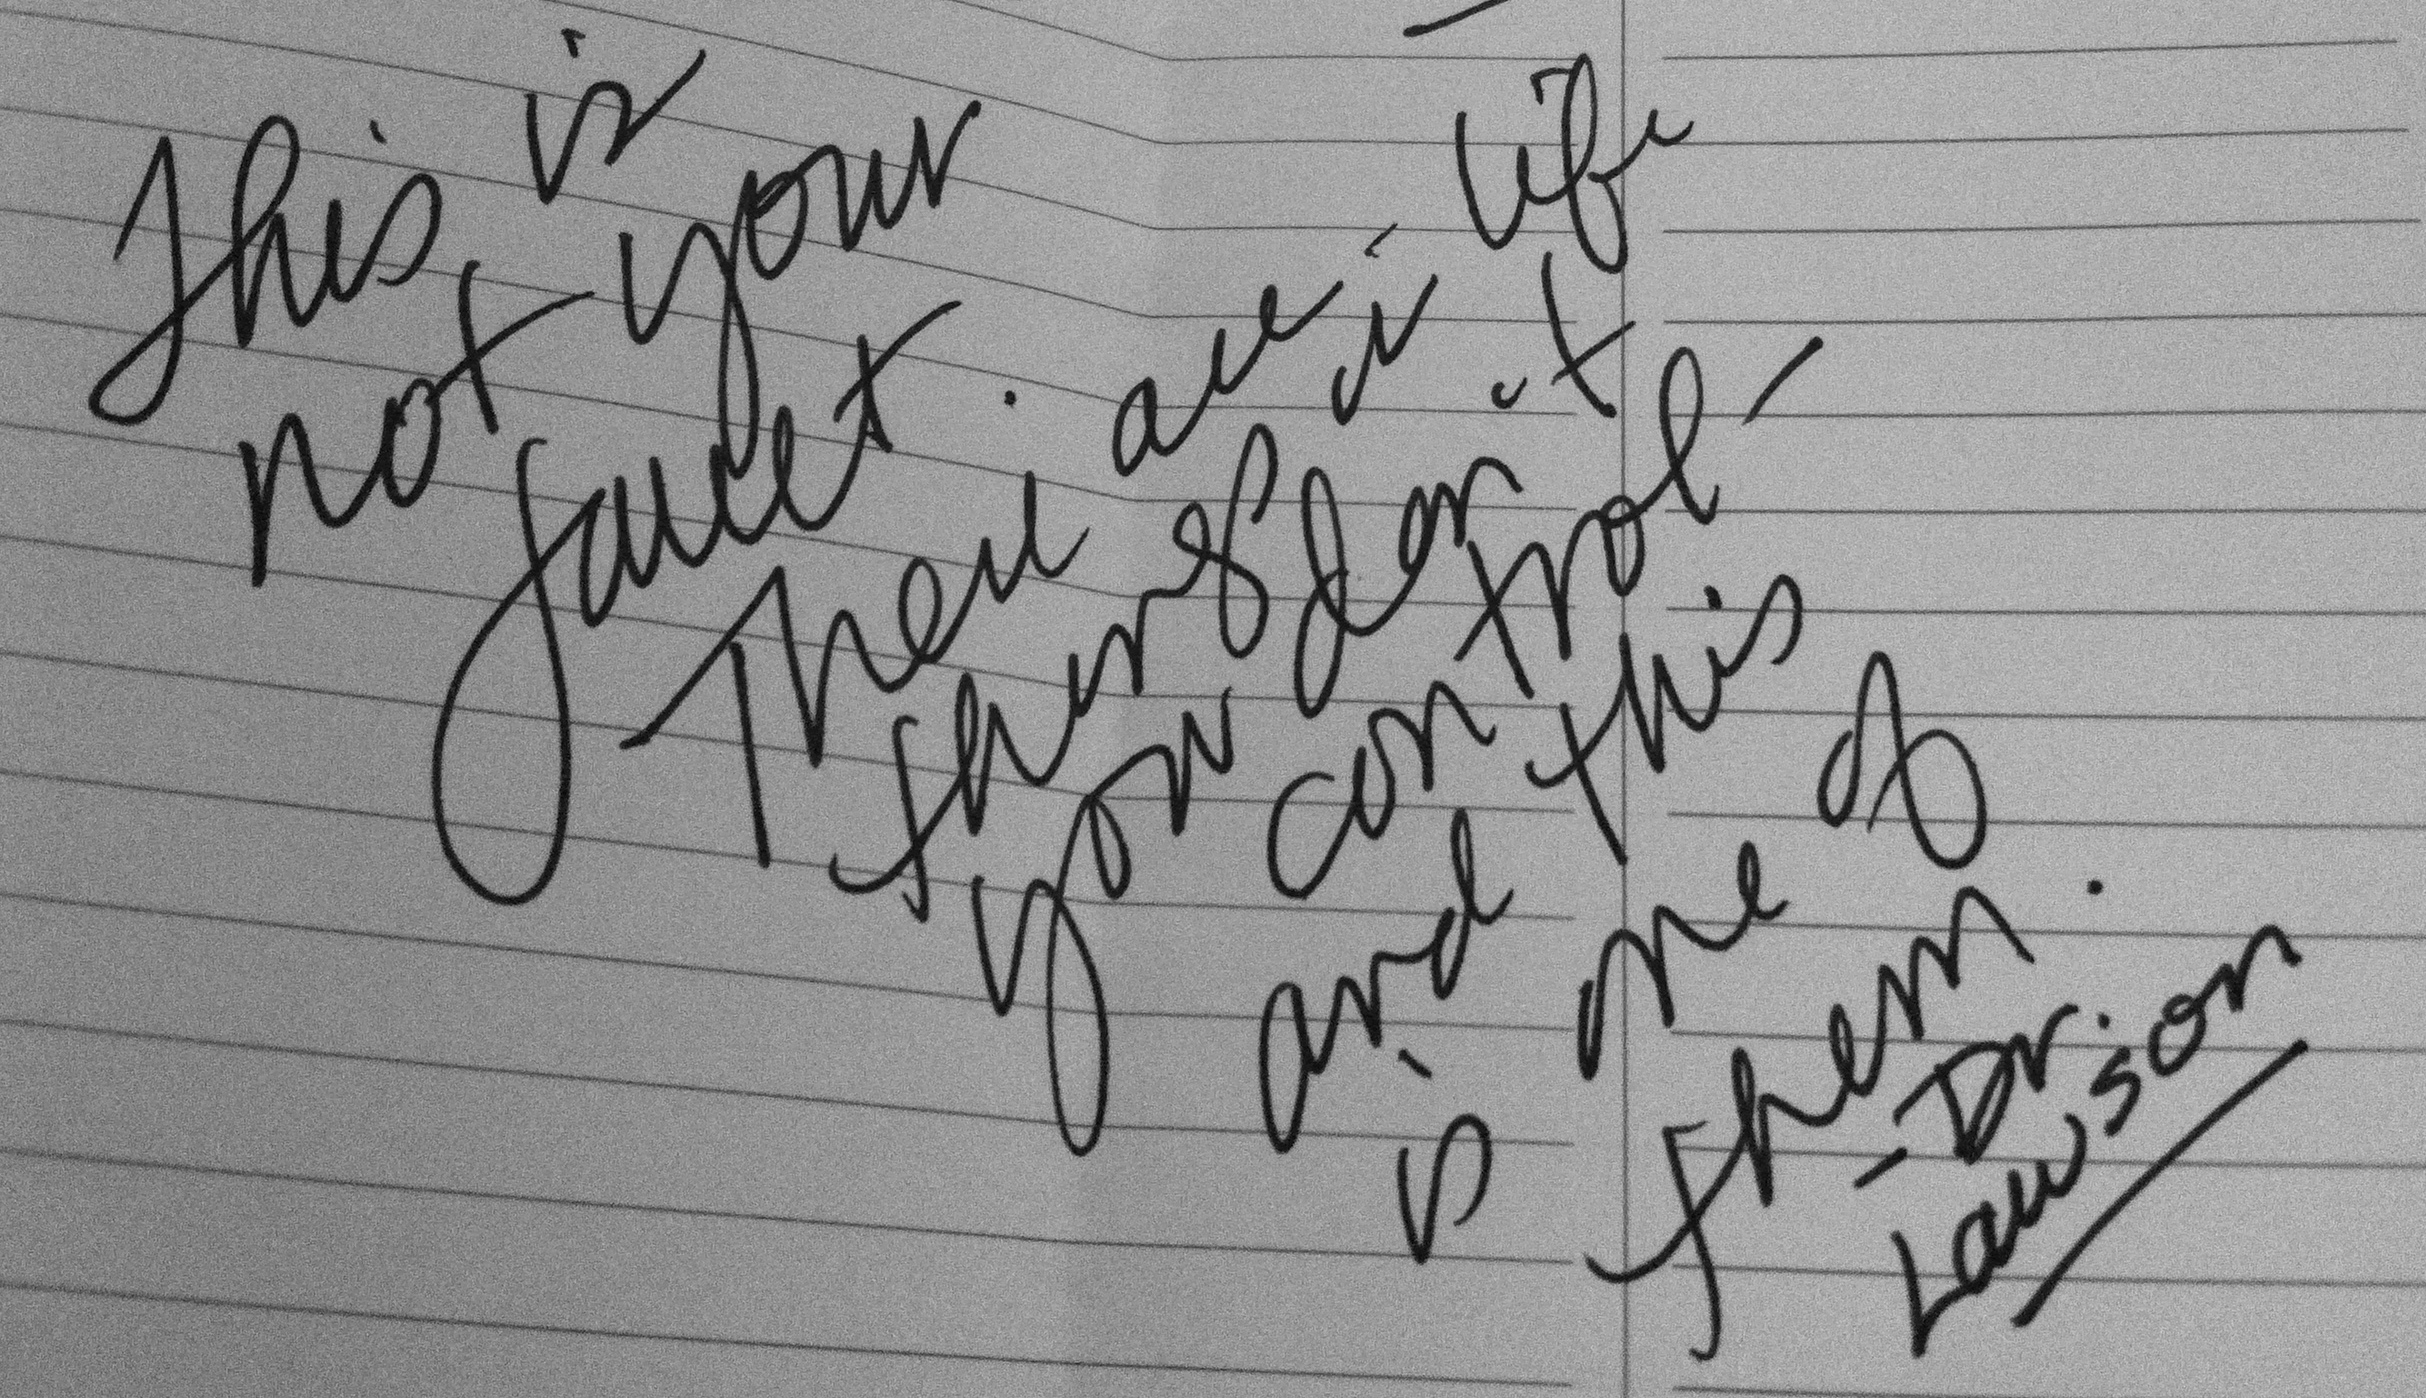 This is
not your
fault.
There are in life
things
you don't
control -
and this
is one of
them.
- Dr.
Lawson